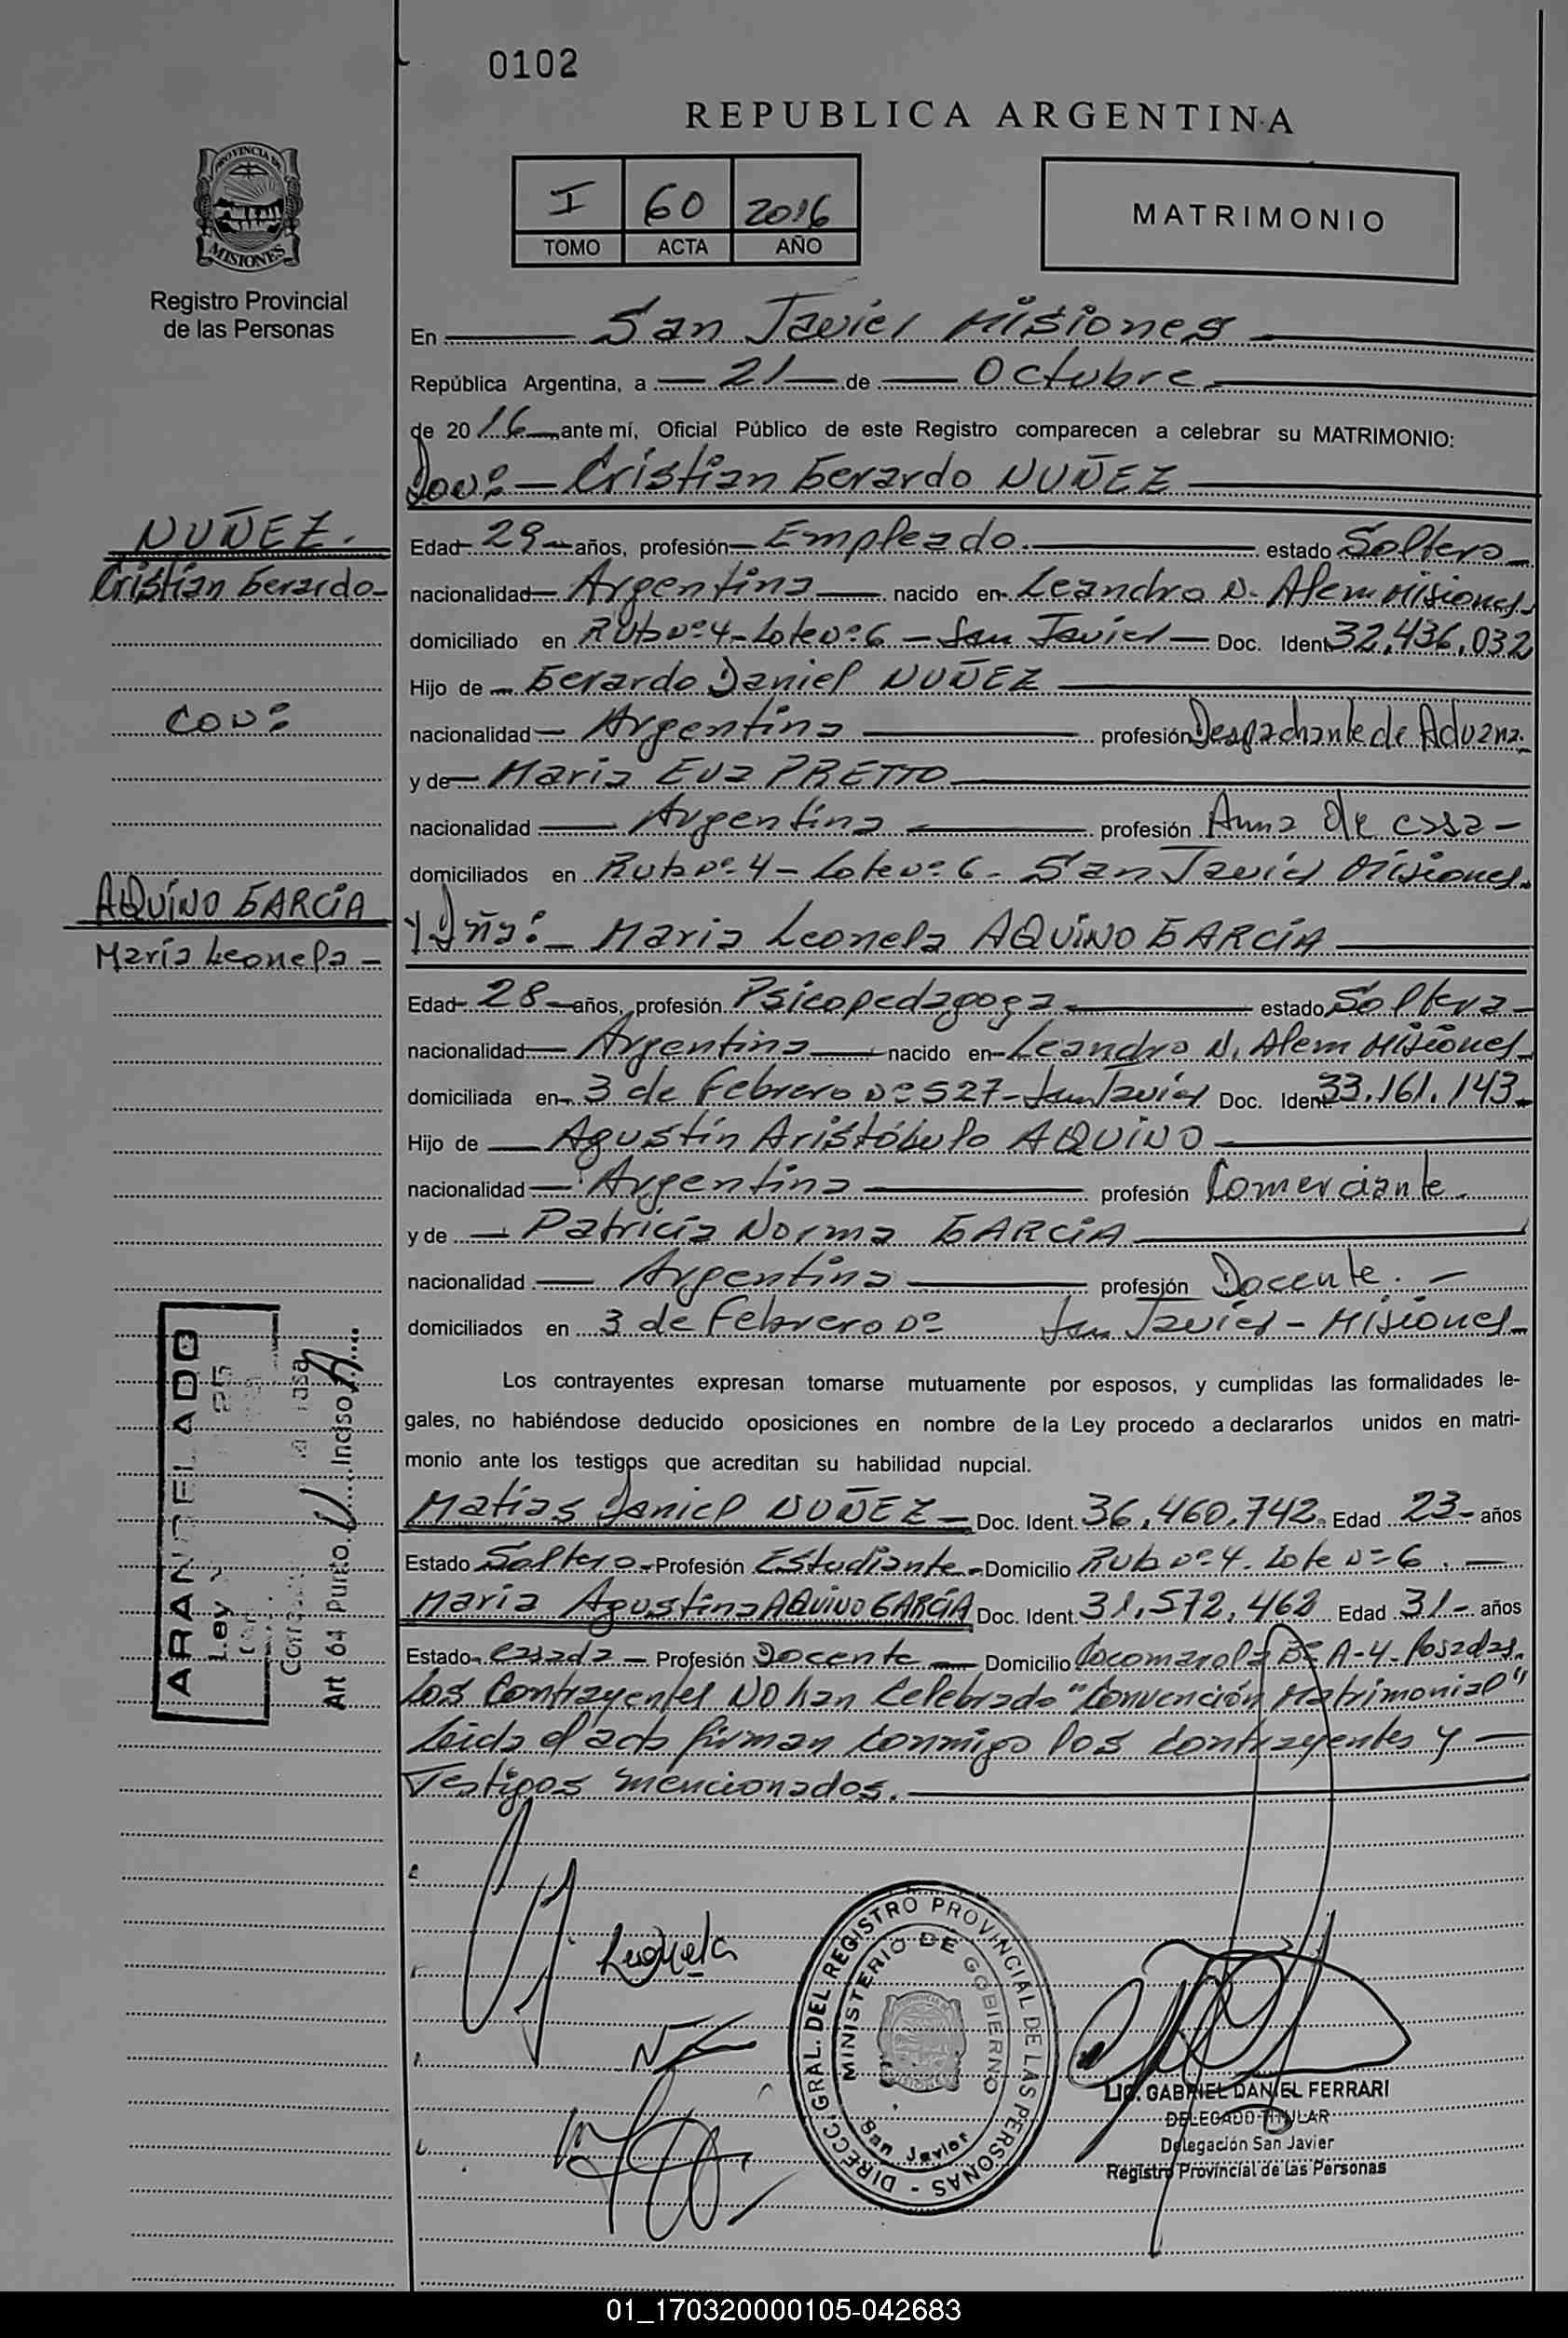 0102
REPUBLICA ARGENTINA
PROVINCIA DE
MISIONES
Registro Provincial
de las Personas
I 60 2016
TOMO ACTA AÑO
MATRIMONIO
En San Javier Misiones
República Argentina, a 21 de Octubre
de 2016 ante mí, Oficial Público de este Registro comparecen a celebrar su MATRIMONIO:
Don: Cristian Gerardo NUÑEZ
NUÑEZ.
Cristian Gerardo
Edad 29 años, profesión Empleado. estado Soltero
nacionalidad Argentina nacido en Leandro N. Alem Misiones
domiciliado en Ruta Nº 4 - Lote Nº 6 - San Javier Doc. Ident 32.436.032
Hijo de Gerardo Daniel NUÑEZ
CON:
nacionalidad Argentina profesión Despachante de Aduana.
y de Maria Eva PRETTO
nacionalidad Argentina profesión Ama de casa
domiciliados en Ruta Nº 4 - Lote Nº 6 - San Javier Misiones.
AQUINO GARCIA
María Leonela
Y Dña: Maria Leonela AQUINO GARCIA
Edad 28 años, profesión Psicopedagoga estado Soltera
nacionalidad Argentina nacido en Leandro N. Alem Misiones
domiciliada en 3 de Febrero Nº 527 - San Javier Doc. Ident 33.161.143
Hijo de Agustín Aristóbulo AQUINO
nacionalidad Argentina profesión Comerciante.
y de Patricia Norma GARCIA
nacionalidad Argentina profesión Docente.
domiciliados en 3 de Febrero Nº San Javier - Misiones
Los contrayentes expresan tomarse mutuamente por esposos, y cumplidas las formalidades le-
gales, no habiéndose deducido oposiciones en nombre de la Ley procedo a declararlos unidos en matri-
monio ante los testigos que acreditan su habilidad nupcial.
Matias Daniel NUÑEZ Doc. Ident. 36.460.742. Edad 23 años
Estado Soltero Profesión Estudiante Domicilio Ruta Nº 4. Lote Nº 6.
Maria Agustina AQUINO GARCIA Doc. Ident. 31.572.462 Edad 31 años
Estado casada Profesión Docente Domicilio Bº A-4 - Posadas.
Los Contrayentes NO han Celebrado "Convención Matrimonial"
Leida el acta firman conmigo los contrayentes y
Testigos mencionados.
ARANCELADO
Ley
Art 64 Punto Inciso A
Leonela
DIRECC. GRAL. DEL REGISTRO PROVINCIAL DE LAS PERSONAS
MINISTERIO DE GOBIERNO
San Javier
LIC. GABRIEL DANIEL FERRARI
DELEGADO TITULAR
Delegación San Javier
Registro Provincial de las Personas
01_170320000105-042683